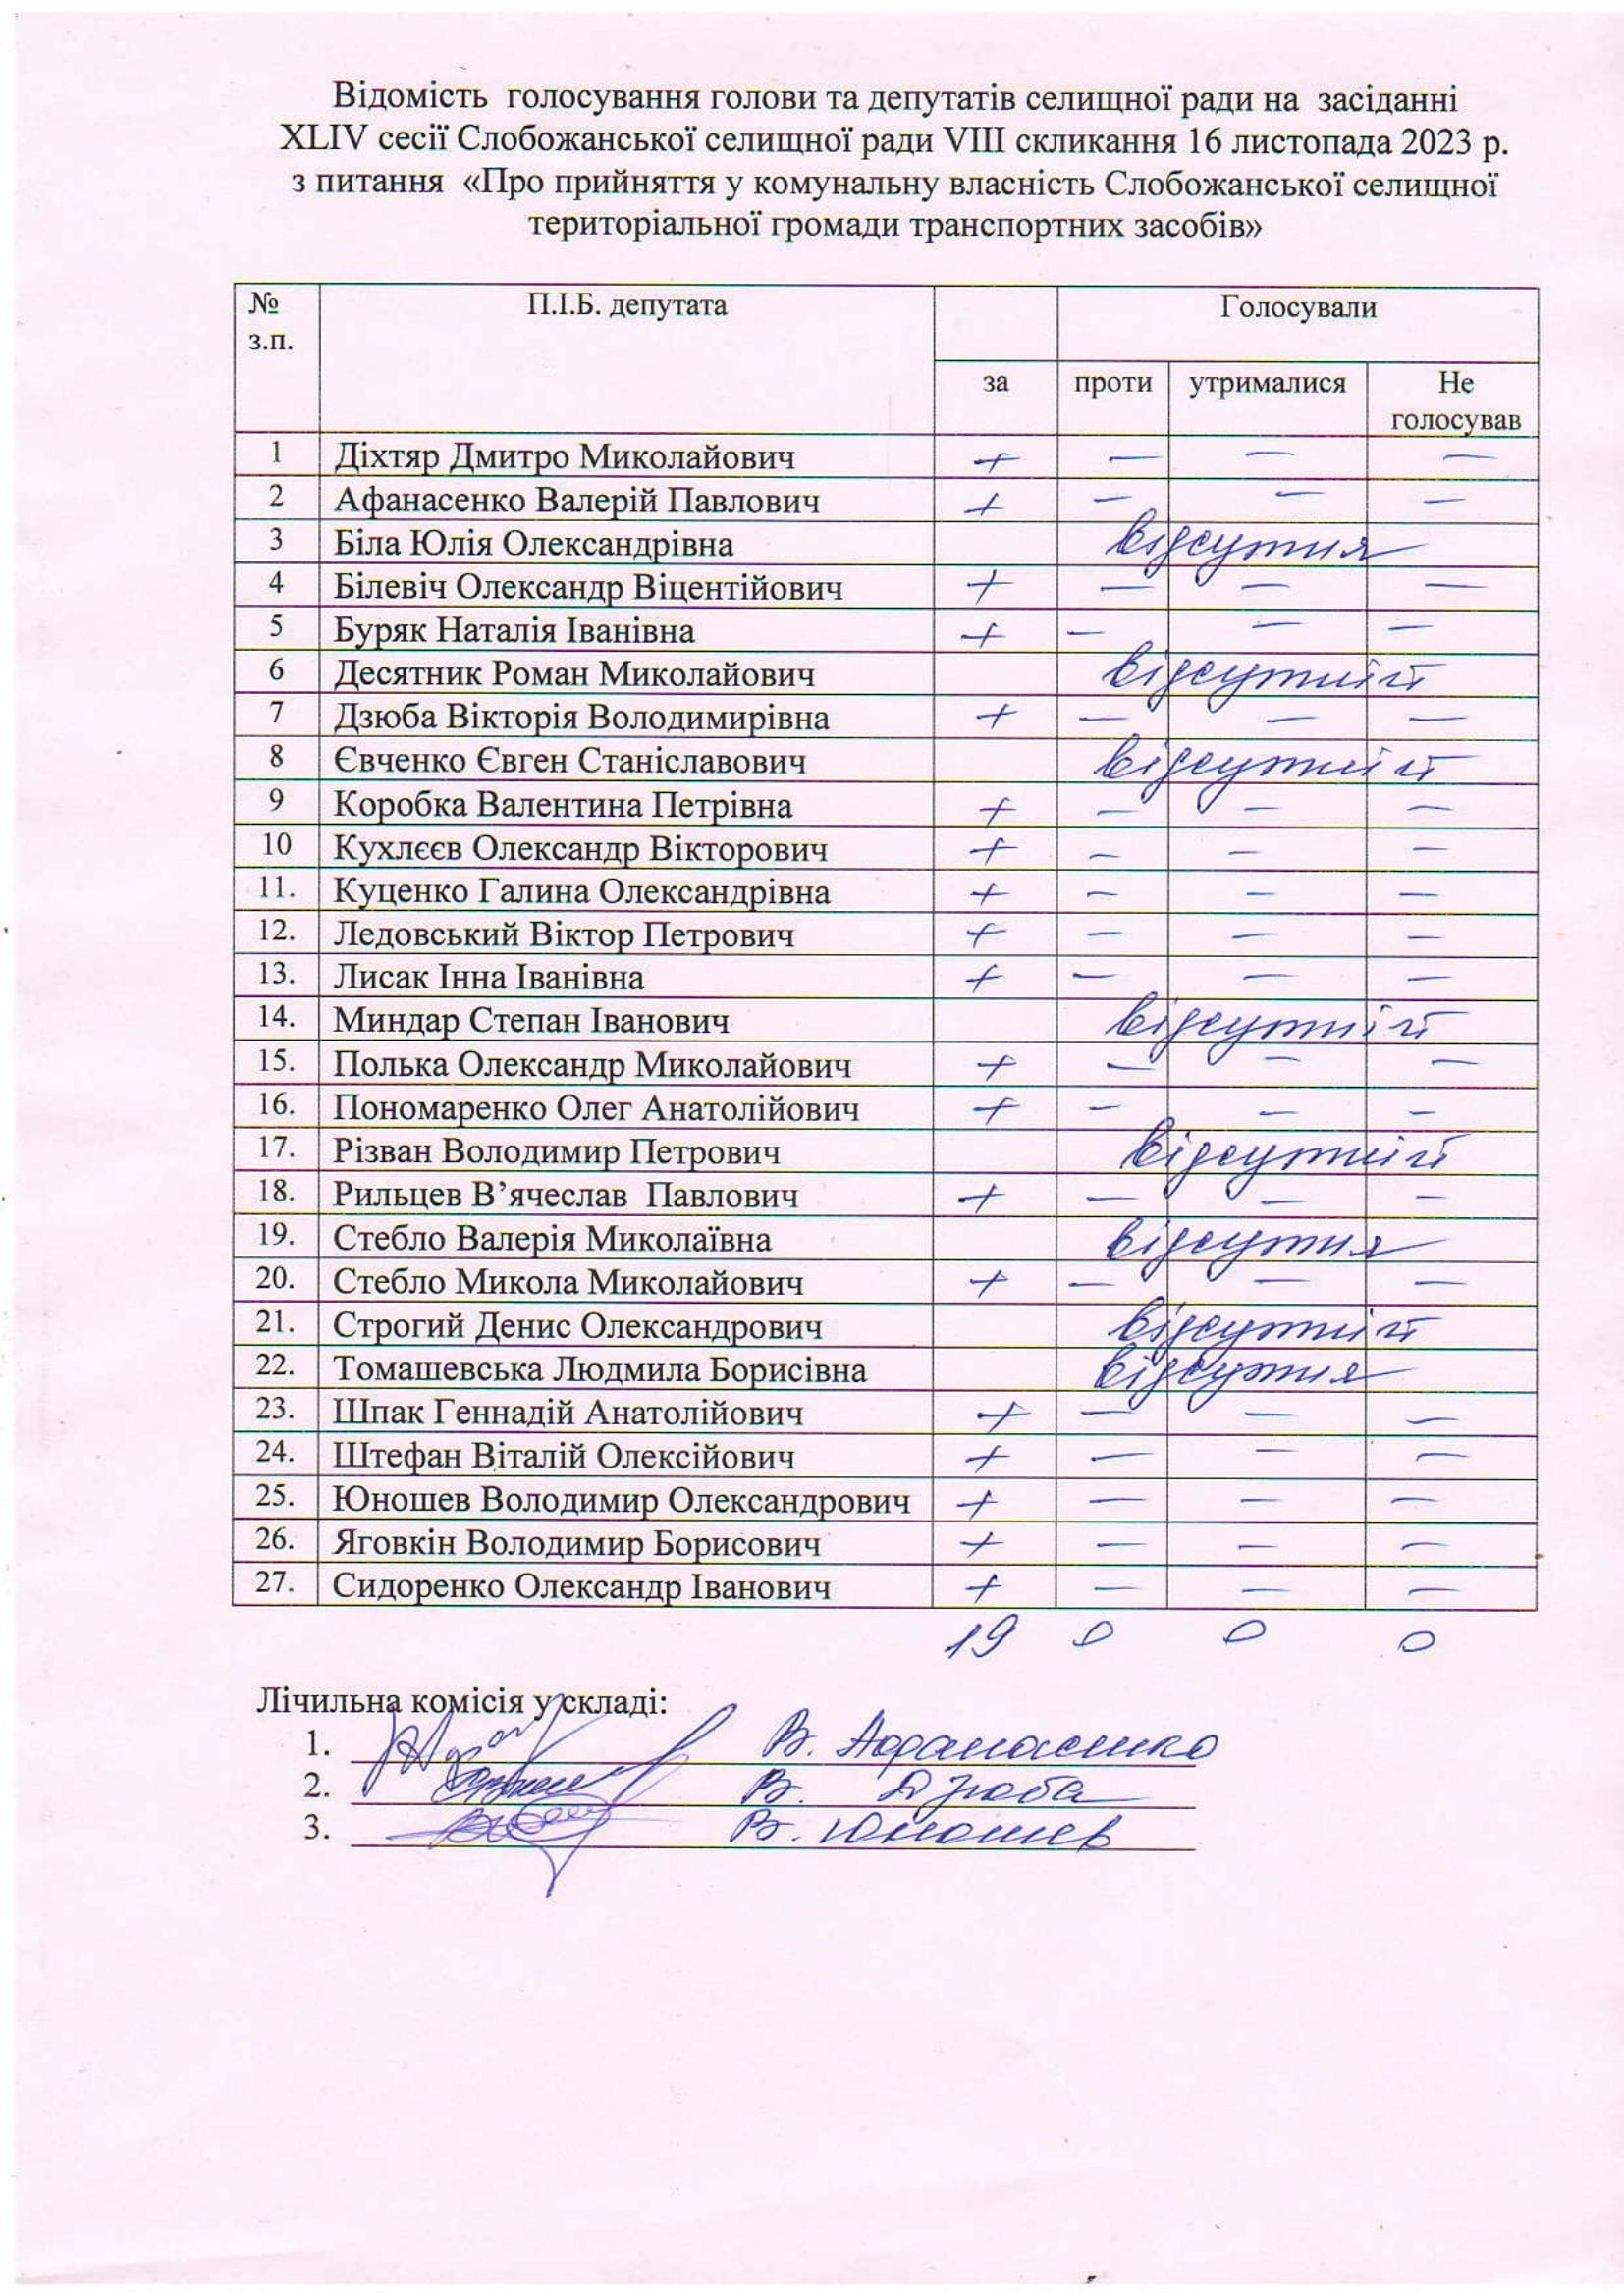 Відомість голосування голови та депутатів селищної ради на засіданні
XLIV сесії Слобожанської селищної ради VIII скликання 16 листопада 2023 р.
з питання «Про прийняття у комунальну власність Слобожанської селищної
територіальної громади транспортних засобів»
№ з.п. П.І.Б. депутата Голосували
за проти утрималися Не голосував
1 Діхтяр Дмитро Миколайович + — — —
2 Афанасенко Валерій Павлович + — — —
3 Біла Юлія Олександрівна відсутня
4 Білевіч Олександр Віцентійович + — — —
5 Буряк Наталія Іванівна + — — —
6 Десятник Роман Миколайович відсутній
7 Дзюба Вікторія Володимирівна + — — —
8 Євченко Євген Станіславович відсутній
9 Коробка Валентина Петрівна + — — —
10 Кухлєєв Олександр Вікторович + — — —
11. Куценко Галина Олександрівна + — — —
12. Ледовський Віктор Петрович + — — —
13. Лисак Інна Іванівна + — — —
14. Миндар Степан Іванович відсутній
15. Полька Олександр Миколайович + — — —
16. Пономаренко Олег Анатолійович + — — —
17. Різван Володимир Петрович відсутній
18. Рильцев В’ячеслав Павлович + — — —
19. Стебло Валерія Миколаївна відсутня
20. Стебло Микола Миколайович + — — —
21. Строгий Денис Олександрович відсутній
22. Томашевська Людмила Борисівна відсутня
23. Шпак Геннадій Анатолійович + — — —
24. Штефан Віталій Олексійович + — — —
25. Юношев Володимир Олександрович + — — —
26. Яговкін Володимир Борисович + — — —
27. Сидоренко Олександр Іванович + — — —
19 0 0 0
Лічильна комісія у складі:
1. В. Афанасенко
2. В. Дзюба
3. В. Юношев